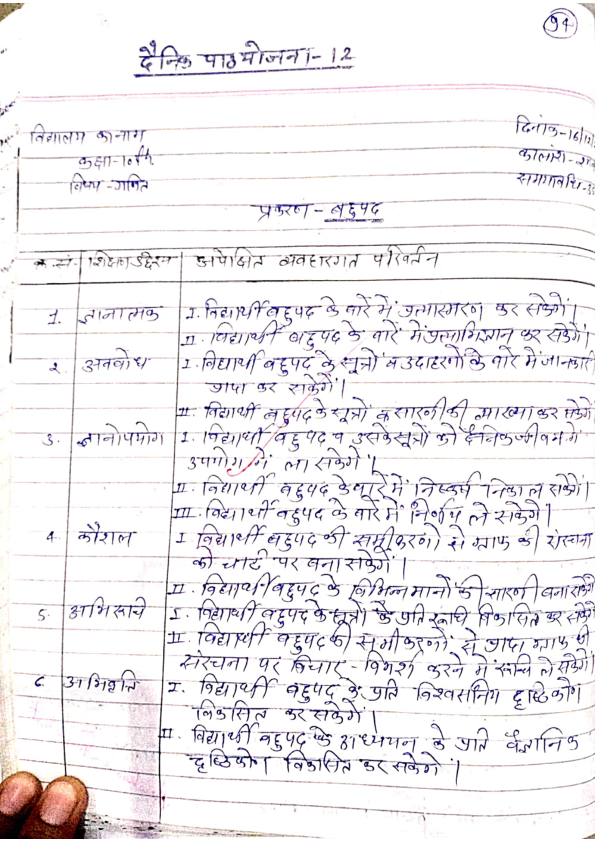 94
दैनिक पाठयोजना-12
विद्यालय का नाम
दिनांक-16/
कक्षा-10th
कालांश-
विषय-गणित
समयावधि-3
प्रकरण - बहुपद
क्र.सं. शिक्षण उद्देश्य अपेक्षित व्यवहारगत परिवर्तन
1. ज्ञानात्मक I. विद्यार्थी बहुपद के बारे में प्रत्यास्मरण कर सकेंगे।
II. विद्यार्थी बहुपद के बारे में प्रत्याभिज्ञान कर सकेंगे।
2. अवबोध I. विद्यार्थी बहुपद के सूत्रों व उदाहरणों के बारे में जानकारी
प्राप्त कर सकेंगे।
II. विद्यार्थी बहुपद के सूत्रों व सारणी की व्याख्या कर सकेंगे
3. ज्ञानोपयोग I. विद्यार्थी बहुपद व उसके सूत्रों को दैनिक जीवन में
उपयोग में ला सकेंगे।
II. विद्यार्थी बहुपद के बारे में निष्कर्ष निकाल सकेंगे।
III. विद्यार्थी बहुपद के बारे में निर्णय ले सकेंगे।
4. कौशल I विद्यार्थी बहुपद की समीकरणों से ग्राफ की संरचना
को चार्ट पर बना सकेंगे।
II. विद्यार्थी बहुपद के विभिन्न मानों की सारणी बना सकेंगे
5. अभिरूचि I. विद्यार्थी बहुपद के सूत्रों के प्रति रूचि विकासित कर सकेंगे
II. विद्यार्थी बहुपद की समीकरणों से प्राप्त ग्राफ की
संरचना पर विचार-विमर्श करने में रूचि ले सकेंगे।
6. अभिवृत्ति I. विद्यार्थी बहुपद के प्रति विश्वसनिय दृष्टिकोण
विकासित कर सकेंगे।
II. विद्यार्थी बहुपद के अध्ययन के प्रति वैज्ञानिक
दृष्टिकोण विकासित कर सकेंगे।